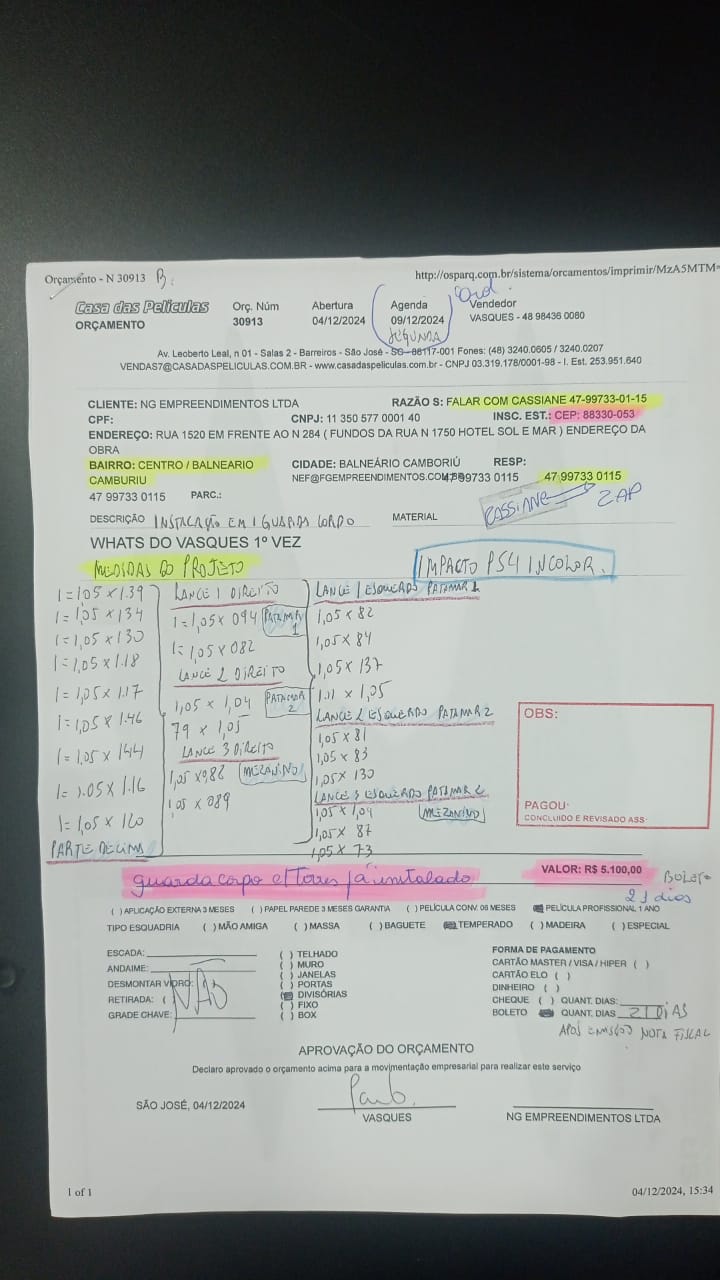 Orçamento - N 30913 B.
http://osparq.com.br/sistema/orcamentos/imprimir/MzA5MTM=
Casa das Películas
ORÇAMENTO
Orç. Núm
30913
Abertura
04/12/2024
Agenda
09/12/2024
SEGUNDA
Vendedor
VASQUES - 48 98436 0080
Av. Leoberto Leal, n 01 - Salas 2 - Barreiros - São José - SC - 88117-001 Fones: (48) 3240.0605 / 3240.0207
VENDAS7@CASADASPELICULAS.COM.BR - www.casadaspeliculas.com.br - CNPJ 03.319.178/0001-98 - I. Est. 253.951.640
CLIENTE: NG EMPREENDIMENTOS LTDA
RAZÃO S: FALAR COM CASSIANE 47-99733-01-15
CPF:
CNPJ: 11 350 577 0001 40
INSC. EST.: CEP: 88330-053
ENDEREÇO: RUA 1520 EM FRENTE AO N 284 ( FUNDOS DA RUA N 1750 HOTEL SOL E MAR ) ENDEREÇO DA
OBRA
BAIRRO: CENTRO / BALNEARIO
CAMBURIU
CIDADE: BALNEÁRIO CAMBORIÚ
RESP:
NEF@FGEMPREENDIMENTOS.COM.BR
47 99733 0115
47 99733 0115
47 99733 0115
PARC.:
CASSIANE ZAP
DESCRIÇÃO INSTALAÇÃO EM 1 GUARDA CORPO
MATERIAL
WHATS DO VASQUES 1º VEZ
IMPACTO PS4 INCOLOR.
MEDIDAS DO PROJETO
1=105 x 1.39
1=1,05 x 134
1=1,05 x 130
1=1,05 x 1.18
1=1,05 x 1.17
1=1,05 x 1.46
1=1,05 x 144
1=1.05 x 1.16
1=1,05 x 120
PARTE DE CIMA
LANCE 1 DIREITO
1=1,05 x 094 PATAMAR 1
1=1,05 x 082
LANCE 2 DIREITO
1,05 x 1,04 PATAMAR 2
79 x 1,05
LANCE 3 DIREITO
1,05 x 0,82 MEZANINO
1,05 x 089
LANCE 1 ESQUERDO PATAMAR 1
1,05 x 82
1,05 x 84
1,05 x 137
1.11 x 1,05
LANCE 2 ESQUERDO PATAMAR 2
1,05 x 81
1,05 x 83
1,05 x 130
LANCE 3 ESQUERDO PATAMAR 2
1,05 x 1,04 MEZANINO
1,05 x 87
1,05 x 73
OBS:
PAGOU:
CONCLUIDO E REVISADO ASS
guarda corpo c/ Tores já instalado
VALOR: R$ 5.100,00
BOLETO
21 dias
( ) APLICAÇÃO EXTERNA 3 MESES ( ) PAPEL PAREDE 3 MESES GARANTIA ( ) PELÍCULA CONV. 06 MESES PELÍCULA PROFISSIONAL 1 ANO
TIPO ESQUADRIA ( ) MÃO AMIGA ( ) MASSA ( ) BAGUETE TEMPERADO ( ) MADEIRA ( ) ESPECIAL
ESCADA:
ANDAIME:
DESMONTAR VIDRO:
RETIRADA: (
GRADE CHAVE:
NÃO
( ) TELHADO
( ) MURO
( ) JANELAS
( ) PORTAS
DIVISÓRIAS
( ) FIXO
( ) BOX
FORMA DE PAGAMENTO
CARTÃO MASTER / VISA / HIPER ( )
CARTÃO ELO ( )
DINHEIRO ( )
CHEQUE ( ) QUANT. DIAS:
BOLETO QUANT. DIAS 21 DIAS
APÓS EMISSÃO NOTA FISCAL
APROVAÇÃO DO ORÇAMENTO
Declaro aprovado o orçamento acima para a movimentação empresarial para realizar este serviço
SÃO JOSÉ, 04/12/2024
VASQUES
NG EMPREENDIMENTOS LTDA
1 of 1
04/12/2024, 15:34